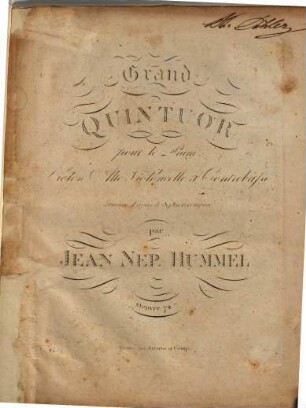 Grand
QUINTUOR
pour le Piano
Violon Alto Violoncelle et Contrebasse
par
JEAN NEP. HUMMEL
Oeuvre 74